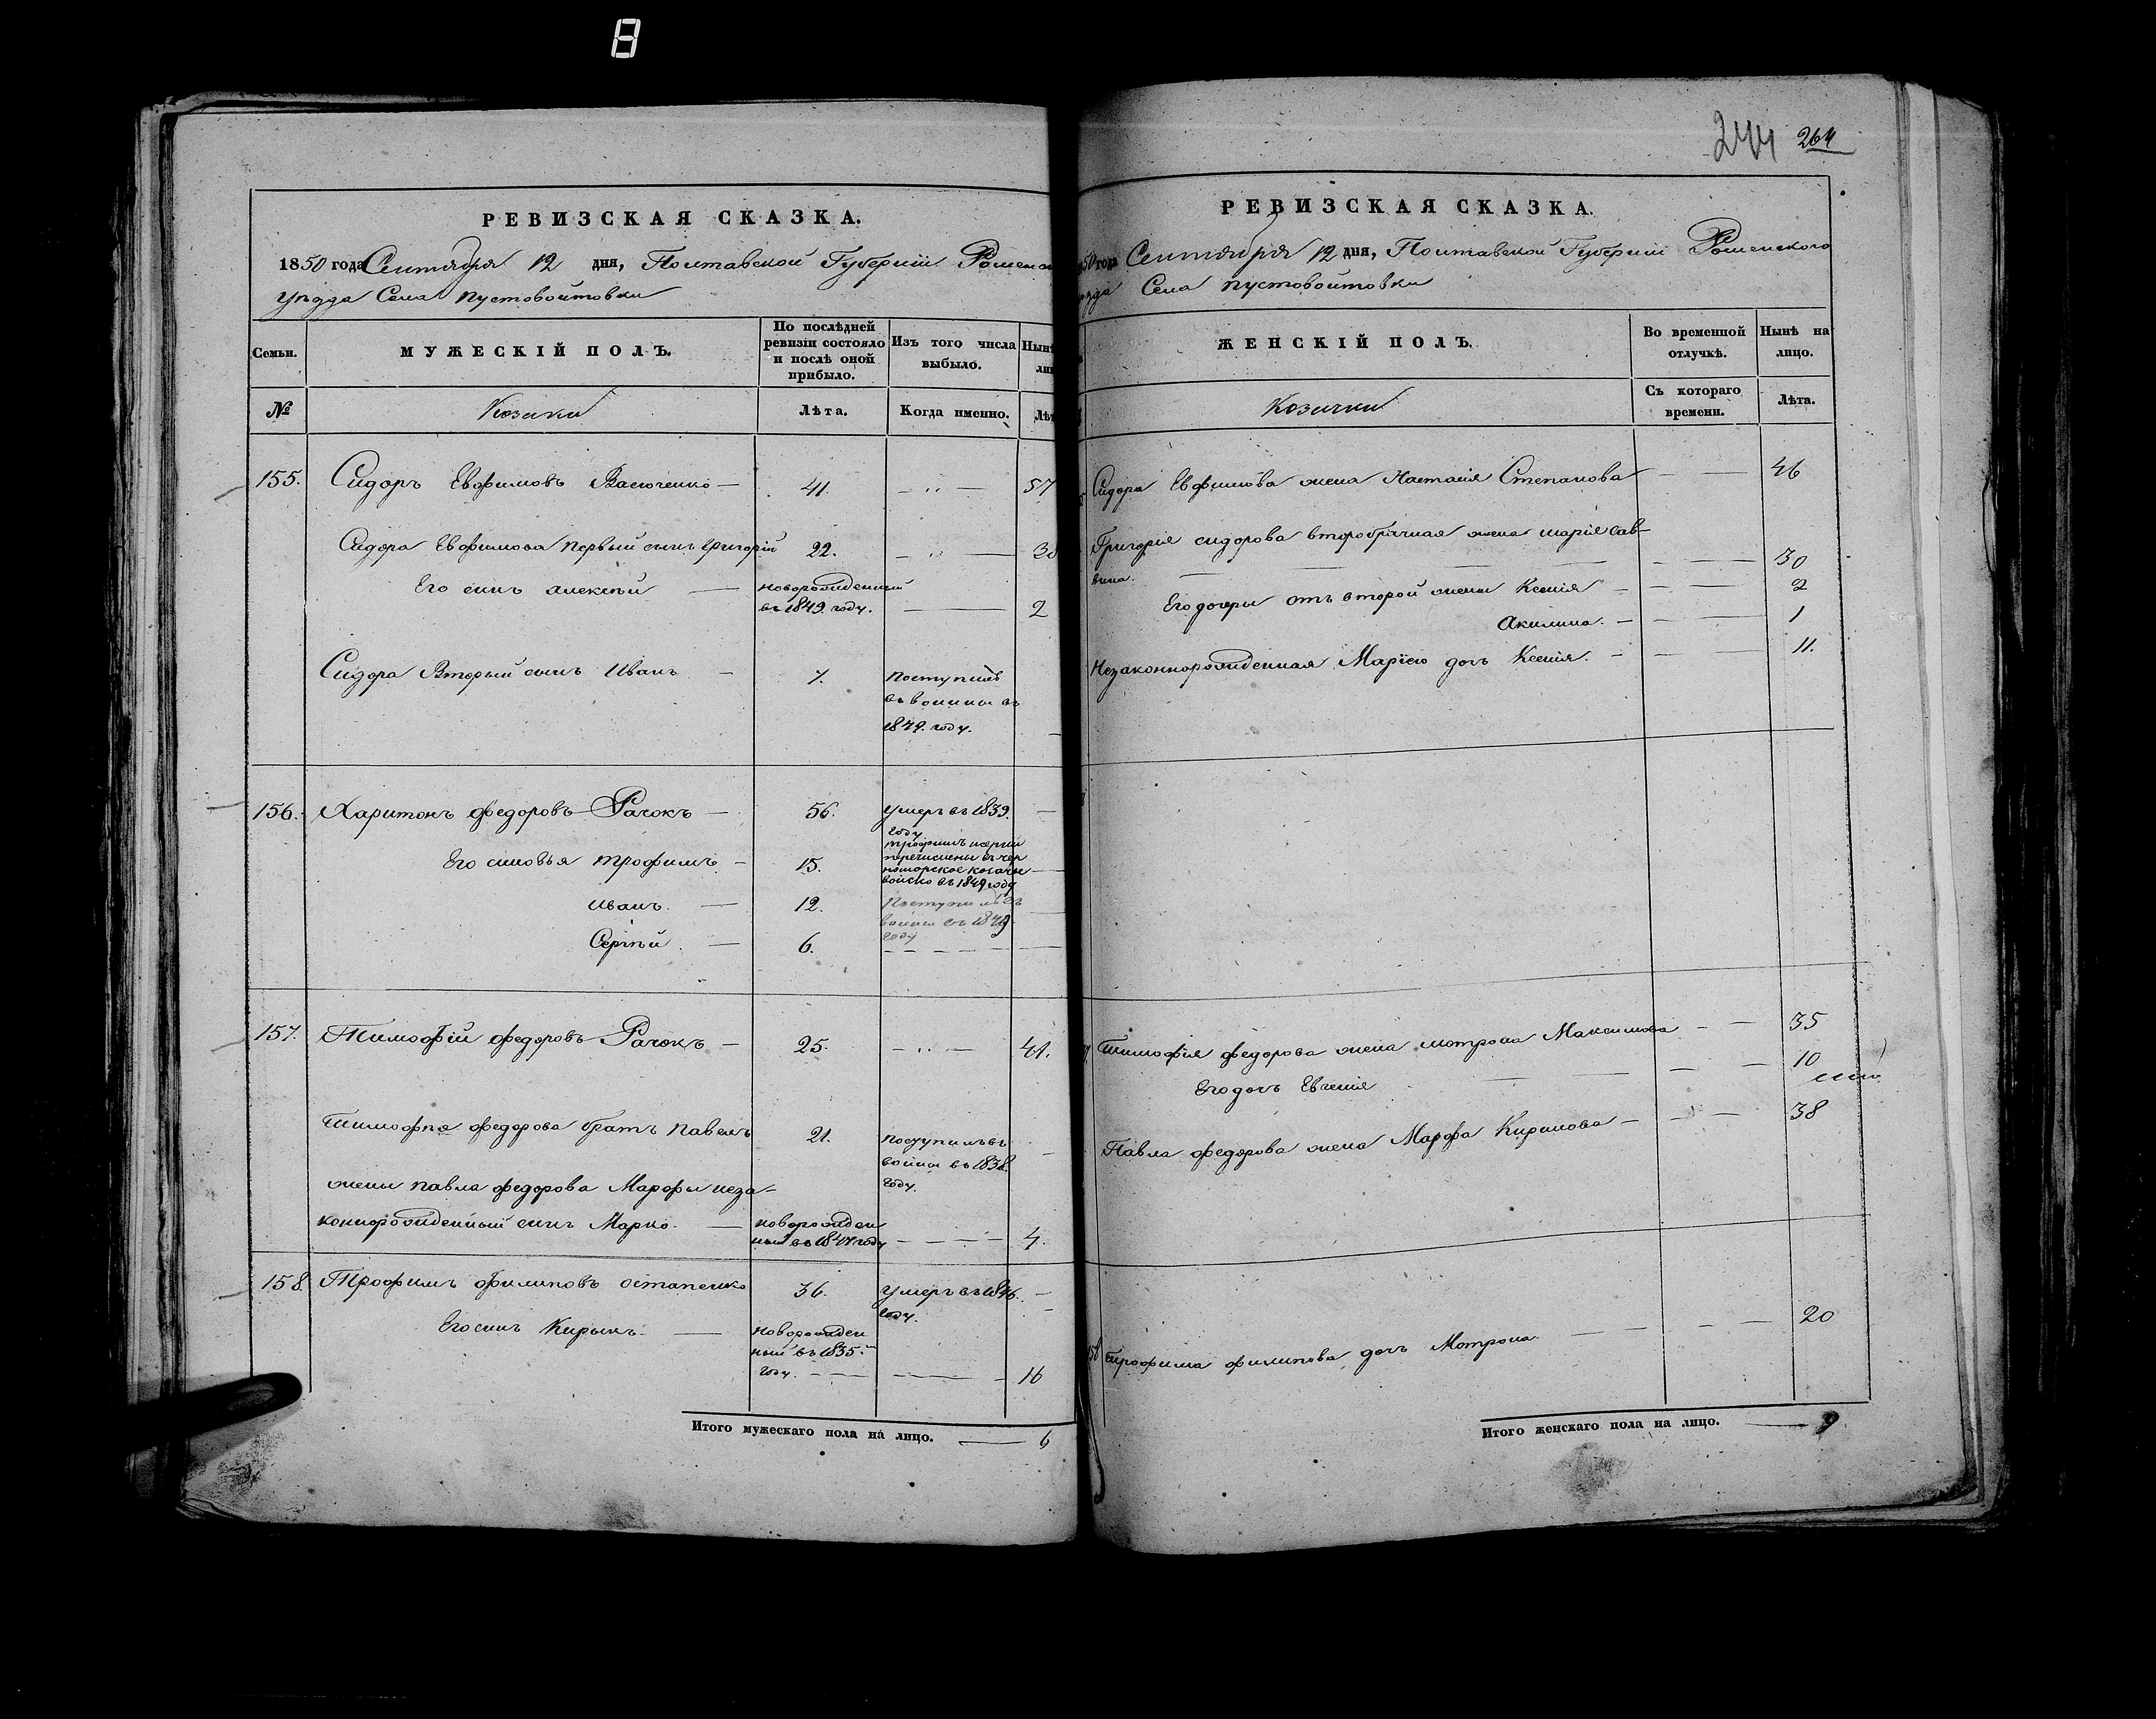 8
РЕВИЗСКАЯ СКАЗКА.
1850 года Сентября 12 дня, Полтавской Губерніи Роменска
уѣзда Села пустовойтовки
Семьи.
МУЖЕСКІЙ ПОЛЪ.
По послѣдней
ревизіи состояло
и послѣ оной
прибыло.
Изъ того числа
выбыло.
Нынѣ
ли
№
Козаки
Лѣта.
Когда именно.
Лѣт
155. Сидоръ Евфимовъ Васюченко — 41. — 57
Сидора Евфимова первый сынъ григорій 22. — 38
Его сынъ алексѣй — новорожденный
въ 1849. году. — 2
Сидора Вторый сынъ Иванъ — 7. Поступилъ
въ воины въ
1849. году. —
156. Харитонъ федоровъ Рачокъ — 56. умеръ въ 1839. —
году
Его синовья трофимъ — 15. трофимъ и сергій
перечислены въ чер
номорское козачье
войско въ 1849 году
Иванъ. — 12. Поступилъ въ
воины въ 1849
году
Сергѣй. — 6. —
157. Тимофій федоровъ Рачокъ — 25. — 41.
Тимофея федорова братъ павелъ 21. поступилъ въ
воины въ 1838.
году.
жены павла федорова Марфы неза-
коннорожденный сынъ Марко. — новорожден
ный въ 1847 году — 4.
158. Трофимъ филиповъ остапенко 36. умеръ въ 1846. —
году.
Его сынъ Кирыкъ. — новорожден
ный въ 1835.
году. — 16
Итого мужескаго пола на лицо. — 6
244 264
РЕВИЗСКАЯ СКАЗКА.
50 года Сентября 12 дня, Полтавской Губерніи Роменского
ѣзда Села пустовойтовки
ЖЕНСКІЙ ПОЛЪ.
Во временной
отлучкѣ.
Нынѣ на
лицо.
Козачки
Съ котораго
времени.
Лѣта.
Сидора Евфимова жена Настасія Степанова — 46
Григорія сидорова второбрачная жена марія сав-
вина. — 30
Его дочеры отъ второй жены Ксенія — 2
Акилина. — 1
Незаконнорожденная Маріею дочь Ксенія. — 11.
Тимофія федорова жена мотрона Максимова — 35
Его дочь Евгенія — 10
Павла федорова жена Марфа Кирилова — 38
158 Трофима филипова дочь Мотрона. — 20
Итого женскаго пола на лицо. — 9